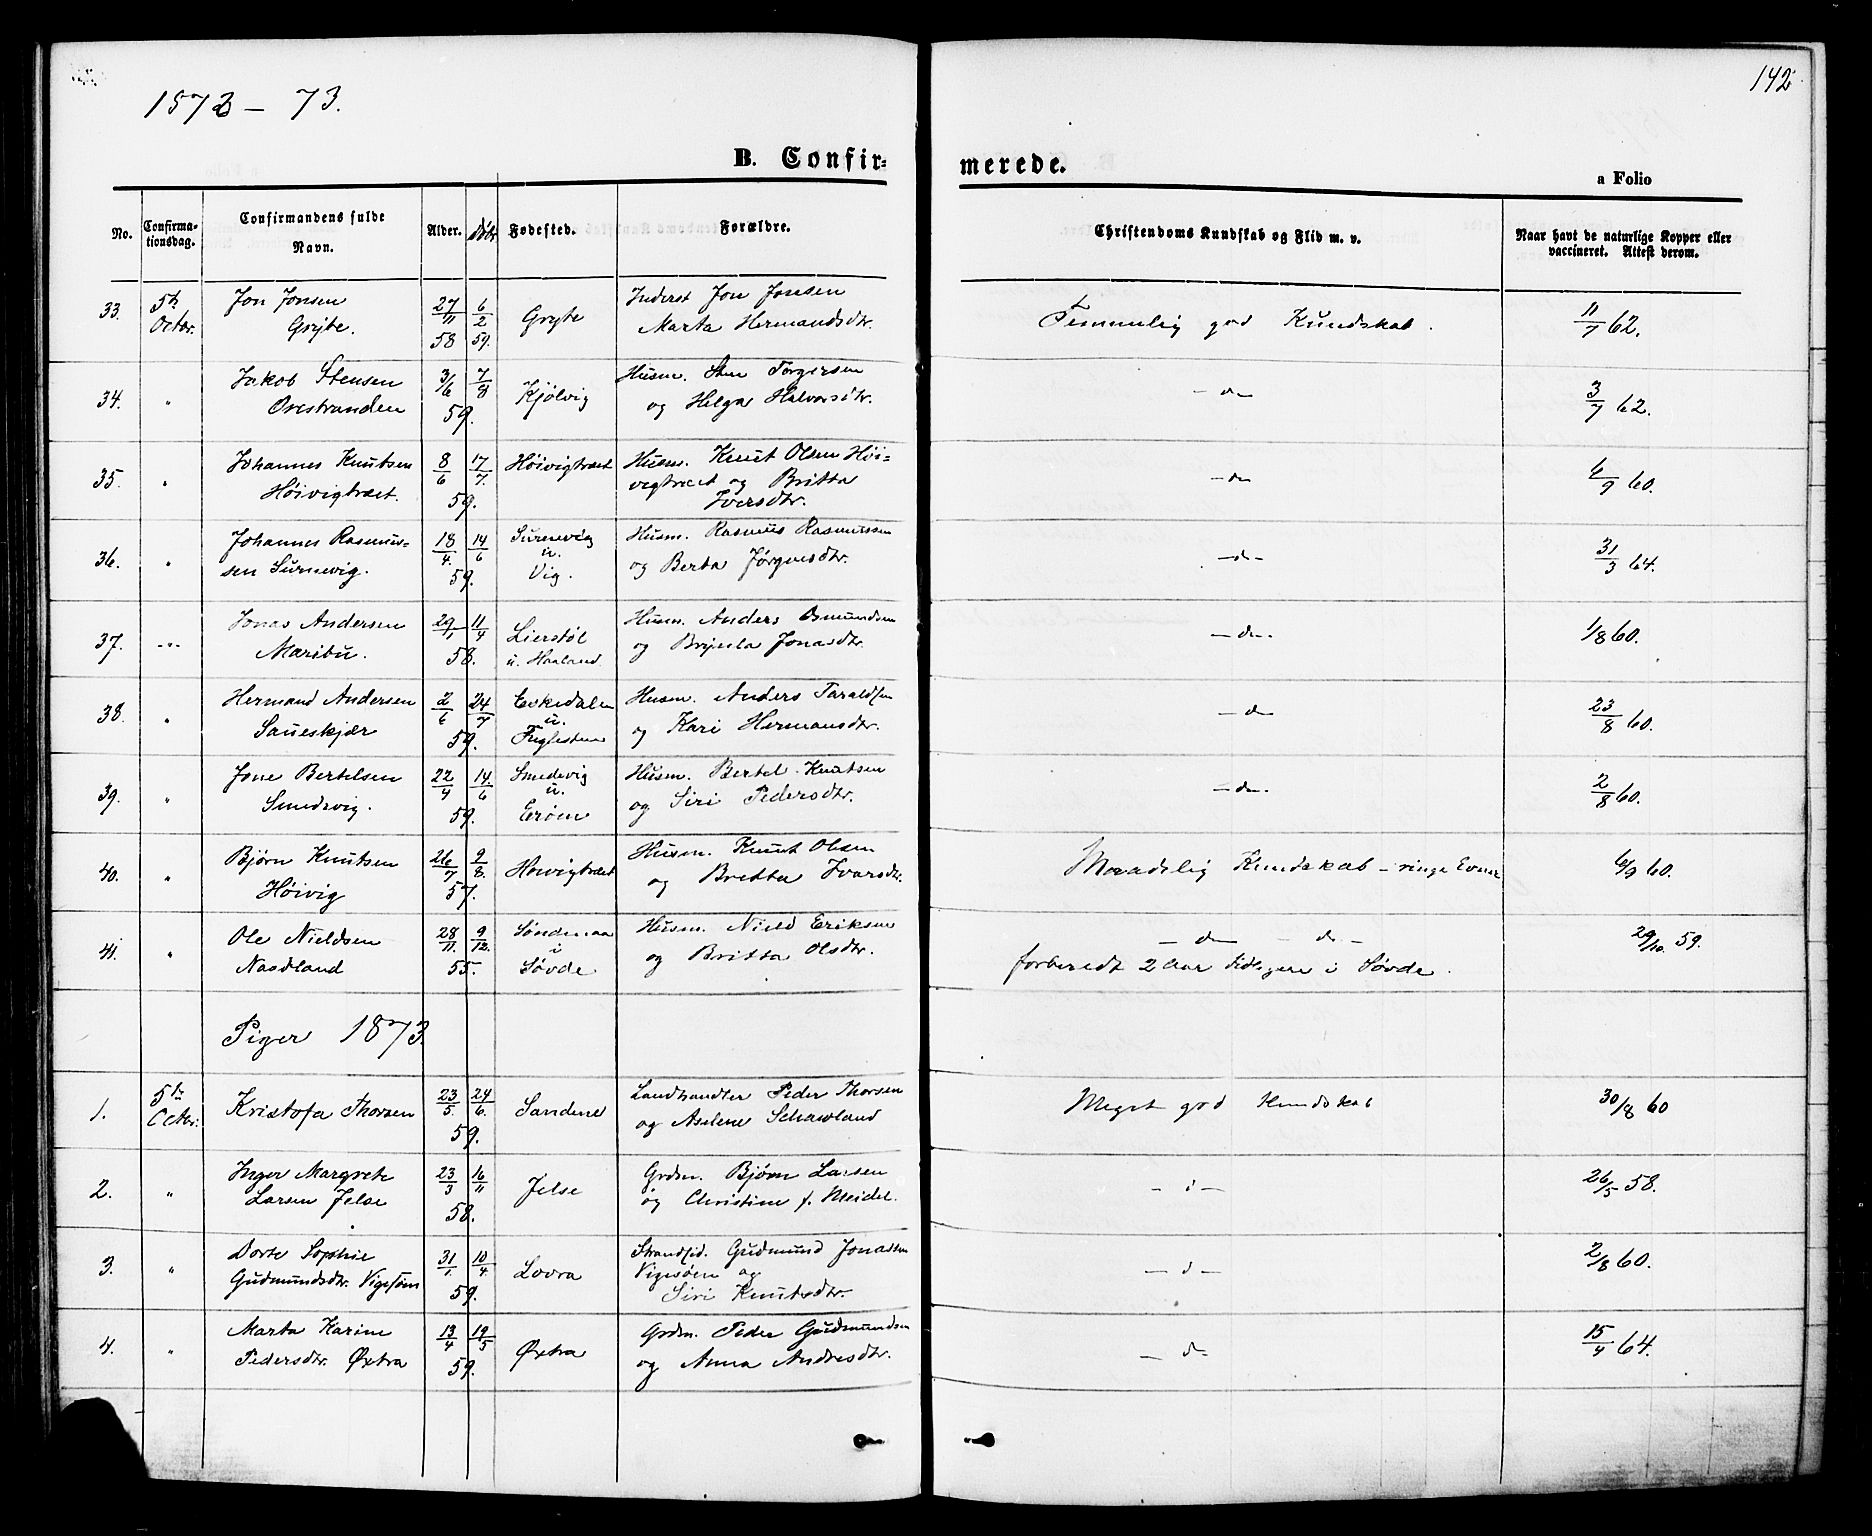 1872 – 73.
142
B. Confir-
merede.
a Folio
No.
Confirma-
tionsdag.
Confirmandens fulde
Navn.
Alder.
Døbt
Fødested.
Forældre.
Christendoms Kundskab og Flid m. v.
Naar havt de naturlige Kopper eller
vaccineret. Attest derom.
33. 5th Octbr. Jon Jonsen 27/11 58 6/2 59. Gryte Inderst Jon Jonsen Temmelig god Kundskab. 11/7 62.
Gryte. Marta Hermandsdtr.
34. " Jakob Stensen 3/6 59. 7/8 Kjölvig Husm. Sten Torgersen – d – 3/7 62.
Orestranden og Helga Halvorsdtr.
35. " Johannes Knutsen 8/6 59. 17/7. Höivigtræet Husm. Knut Olsen Höi- – d – 6/9 60.
Höivigtræet. vigtræet og Britta
Iversdtr.
36. " Johannes Rasmus- 18/4. 59. 14/6 Surnevig Husm. Rasmus Rasmussen – d – 31/3 64.
sen Surnevig. u. Vig. og Berta Jørgensdtr.
37. – " – Jonas Andersen 29/1 58. 11/4 Lierstøl Husm. Anders Osmundsen – d – 1/8 60.
Maribu. u. Haaland. og Brynla Jonasdtr.
38. " Hermand Andersen 2/6 59. 24/7 Eskedalen Husm. Anders Taraldsen – d – 23/8 60.
Saueskjær u. Fuglesteen og Kari Hermansdtr.
39. " Jone Bertelsen 22/4 59. 14/6 Smedvig Husm. Bertel Knutsen – d – 2/8 60.
Smedsvig. u. Erøen og Siri Pedersdtr.
40. " Bjørn Knutsen 26/7 57. 9/8. Hoivigtræet Husm. Knut Olsen Maadelig Kundskab – ringe Evner 6/9 60.
Höivig og Britta Ivarsdtr.
41. " Ole Nieldsen 28/11. 55. 9/12. Søndenaa Husm. Nield Eriksen – d – – d – 29/10 59.
Nasdland i Søvde og Britta Olsdtr. forberedt 2 Aar tidligere i Søvde.
Piger 1873.
1. 5te Octbr: Kristofa Thorsen 23/5. 59. 24/6. Sandene Landhandler Peder Thorsen Meget god Kundskab 30/8 60
og Aselene Schawland
2. " Inger Margrete 23/3 58. 16/11 Jelse Grdm. Bjørn Larsen – d – 26/5 58.
Larsen Jelse og Christine f. Meidel.
3. " Dorte Sophie 31/1. 59. 10/4. Lovra Strandsid. Gudmund Jonassen – d – 2/8 60.
Gudmundsdtr. Vigesøen Vigesøen og
Siri Knutsdtr.
4. " Marta Karine 13/4 59. 19/5 Øxtra Grdm. Peder Gudmundsen – d – 15/4 64.
Pedersdtr. Øxtra og Anna Andresdtr.